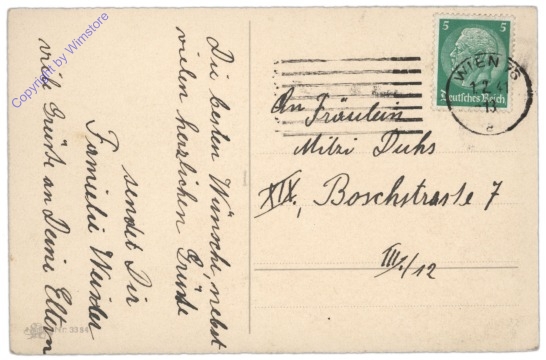 Die besten Wünsche, nebst
vielen herzlichen Grüße
sendet Dir
Familie
viele Grüße an Deine Eltern
An Fräulein
Mitzi Duhs
XIX., Boschstrasse 7
III./12
5 5
Deutsches Reich
WIEN
Nr. 3394
Copyright by Wimstore